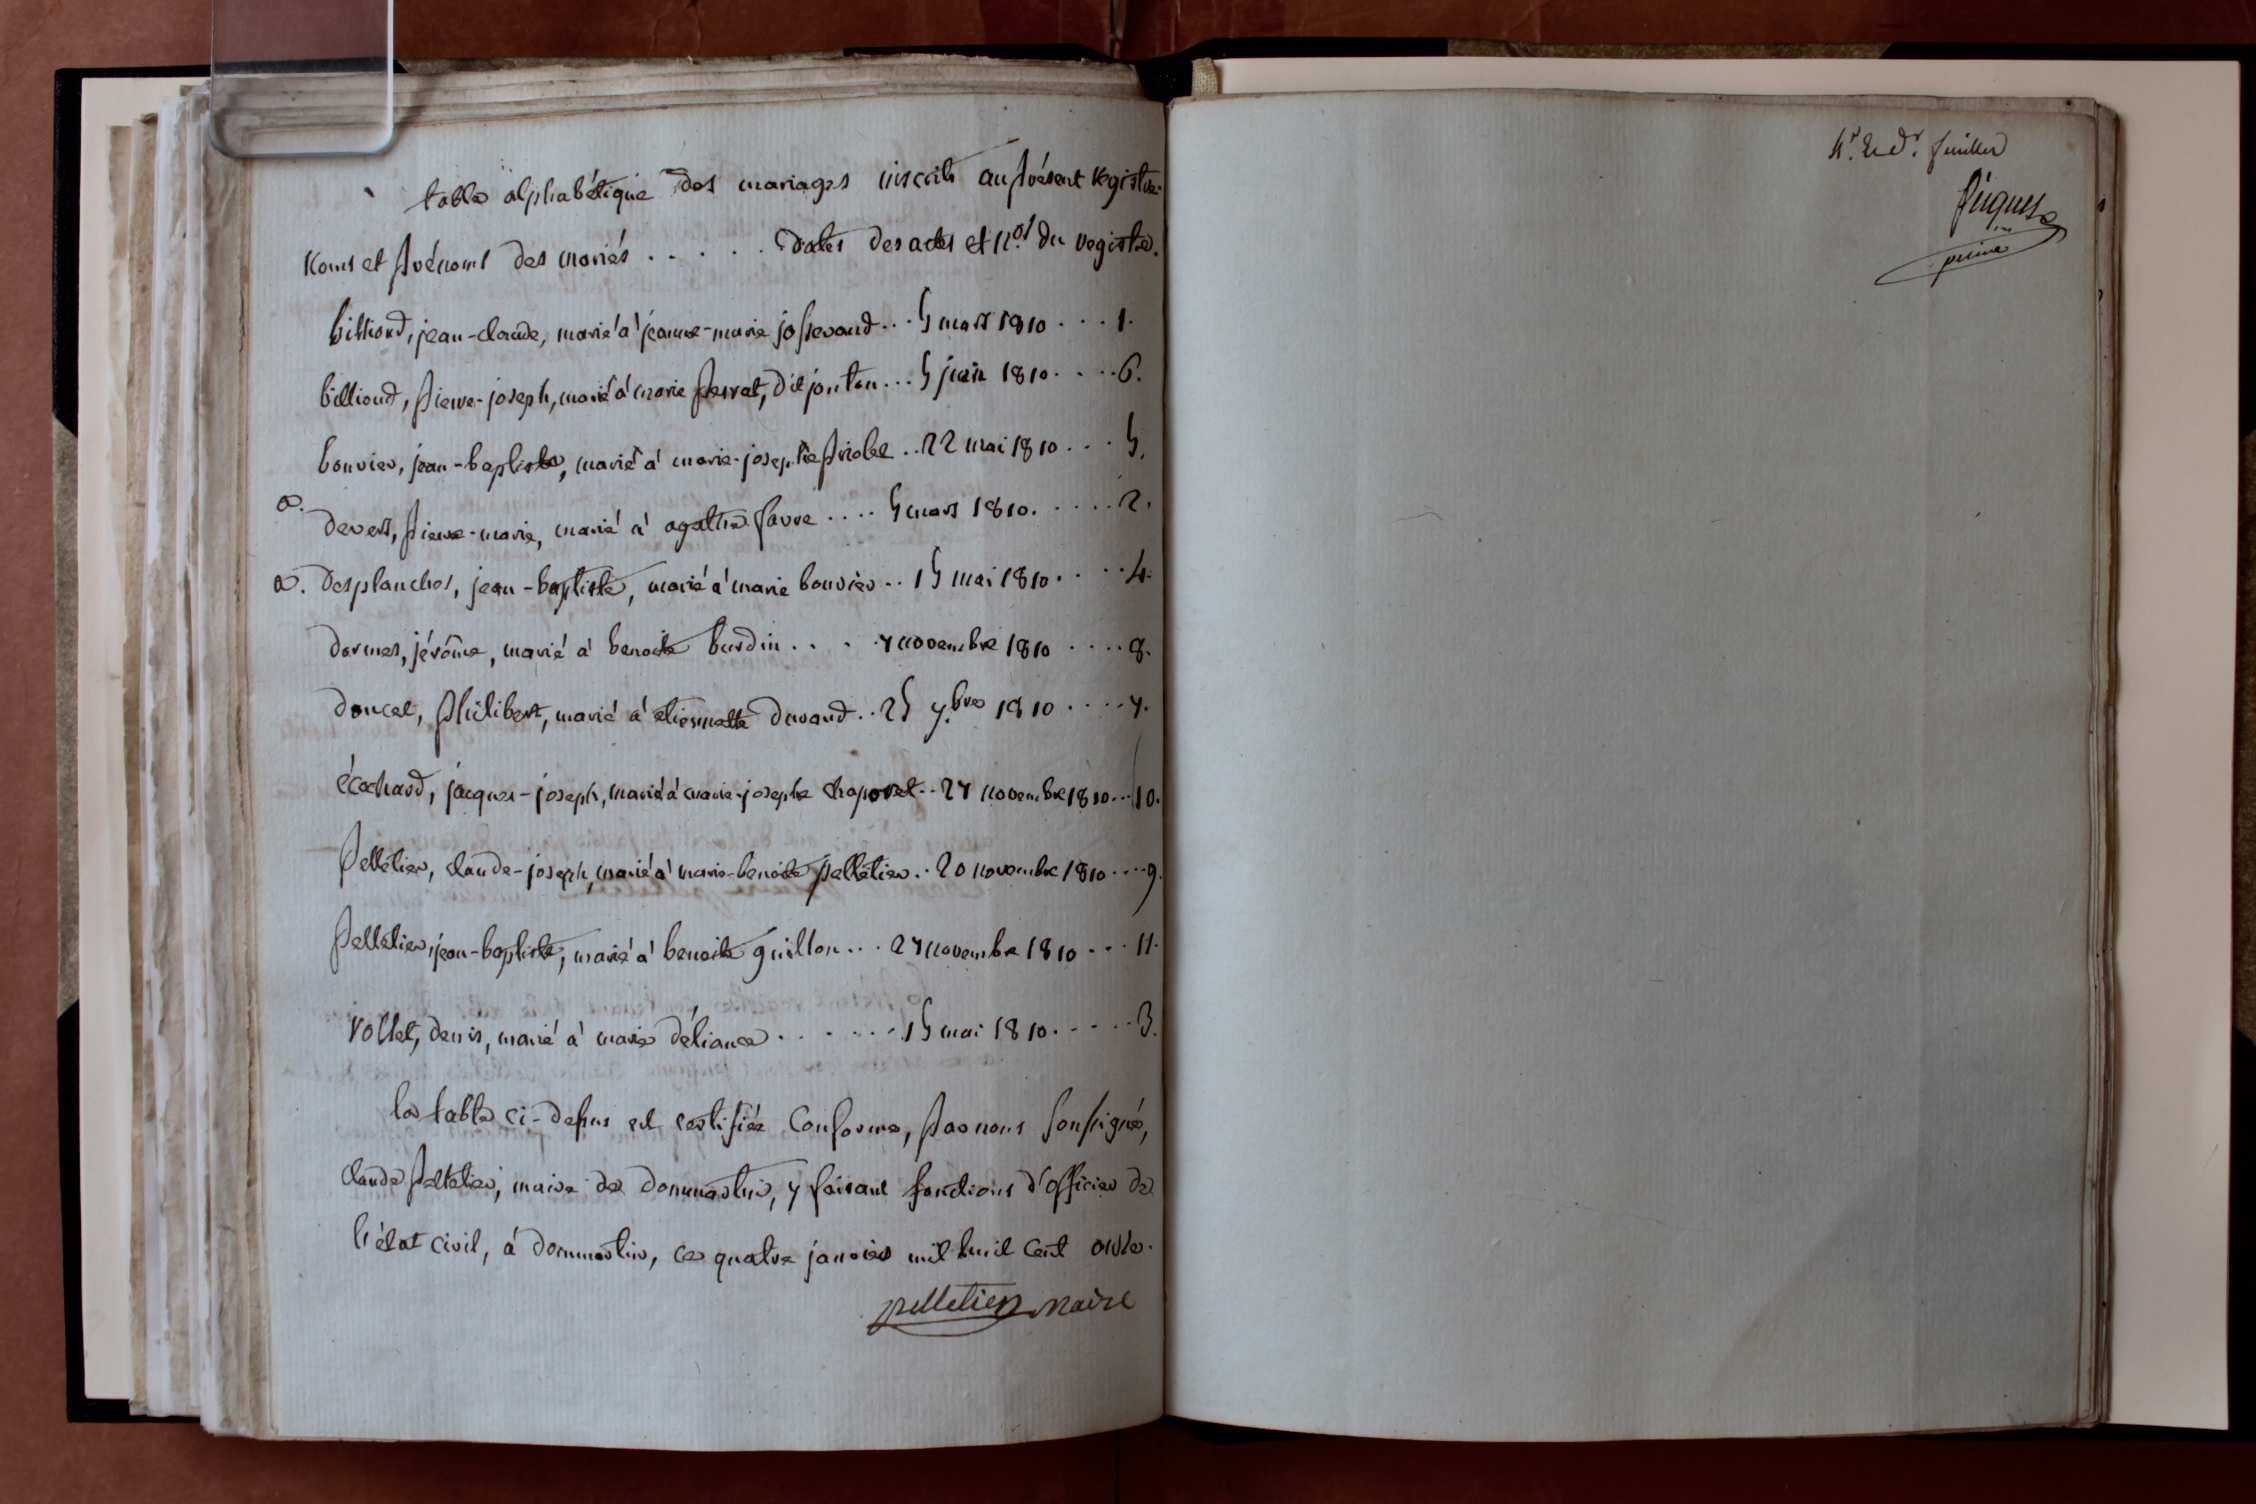 table alphabétique des mariages inscrits au présent registre.
Noms et prénoms des mariés . . . . . Dates des actes et n.os du registre.
billioud, jean-claude, marié à jeanne-marie josserand . . . 5 mars 1810 . . . 1.
billioud, pierre-joseph, marié à marie perrat, dit jonton . . . 5 juin 1810 . . . . 6.
bouvier, jean-baptiste, marié à marie-josephe priolet . . 22 mai 1810 . . . 5.
a.
devert, pierre-marie, marié à agathe favre . . . . 5 mars 1810. . . . . 2.
a. Desplanches, jean-baptiste, marié à marie bouvier . . 15 mai 1810 . . . . 4.
dormes, jérôme, marié à benoite burdin . . . . 7 novembre 1810 . . . . 8.
doucet, philibert, marié à etiennette durand . . 25 7.bre 1810 . . . . 7.
écochard, jacques-joseph, marié à marie-josephe chaponet . . 27 novembre 1810 . . . 10.
pelletier, claude-joseph, marié à marie-benoite pelletier . . 20 novembre 1810 . . . . 9.
pelletier, jean-baptiste, marié à benoite guillon . . . 27 novembre 1810 . . . 11.
vollet, denis, marié à marie déliance . . . . . . . 15 mai 1810 . . . . . 3.
la table ci-dessus est certifiée conforme, par nous soussigné,
claude pelletier, maire de dommartin, y faisant fonctions d'officier de
l'état civil, à dommartin, ce quatre janvier mil huit cent onze.
pelletier maire
4.e et d.r feuillet